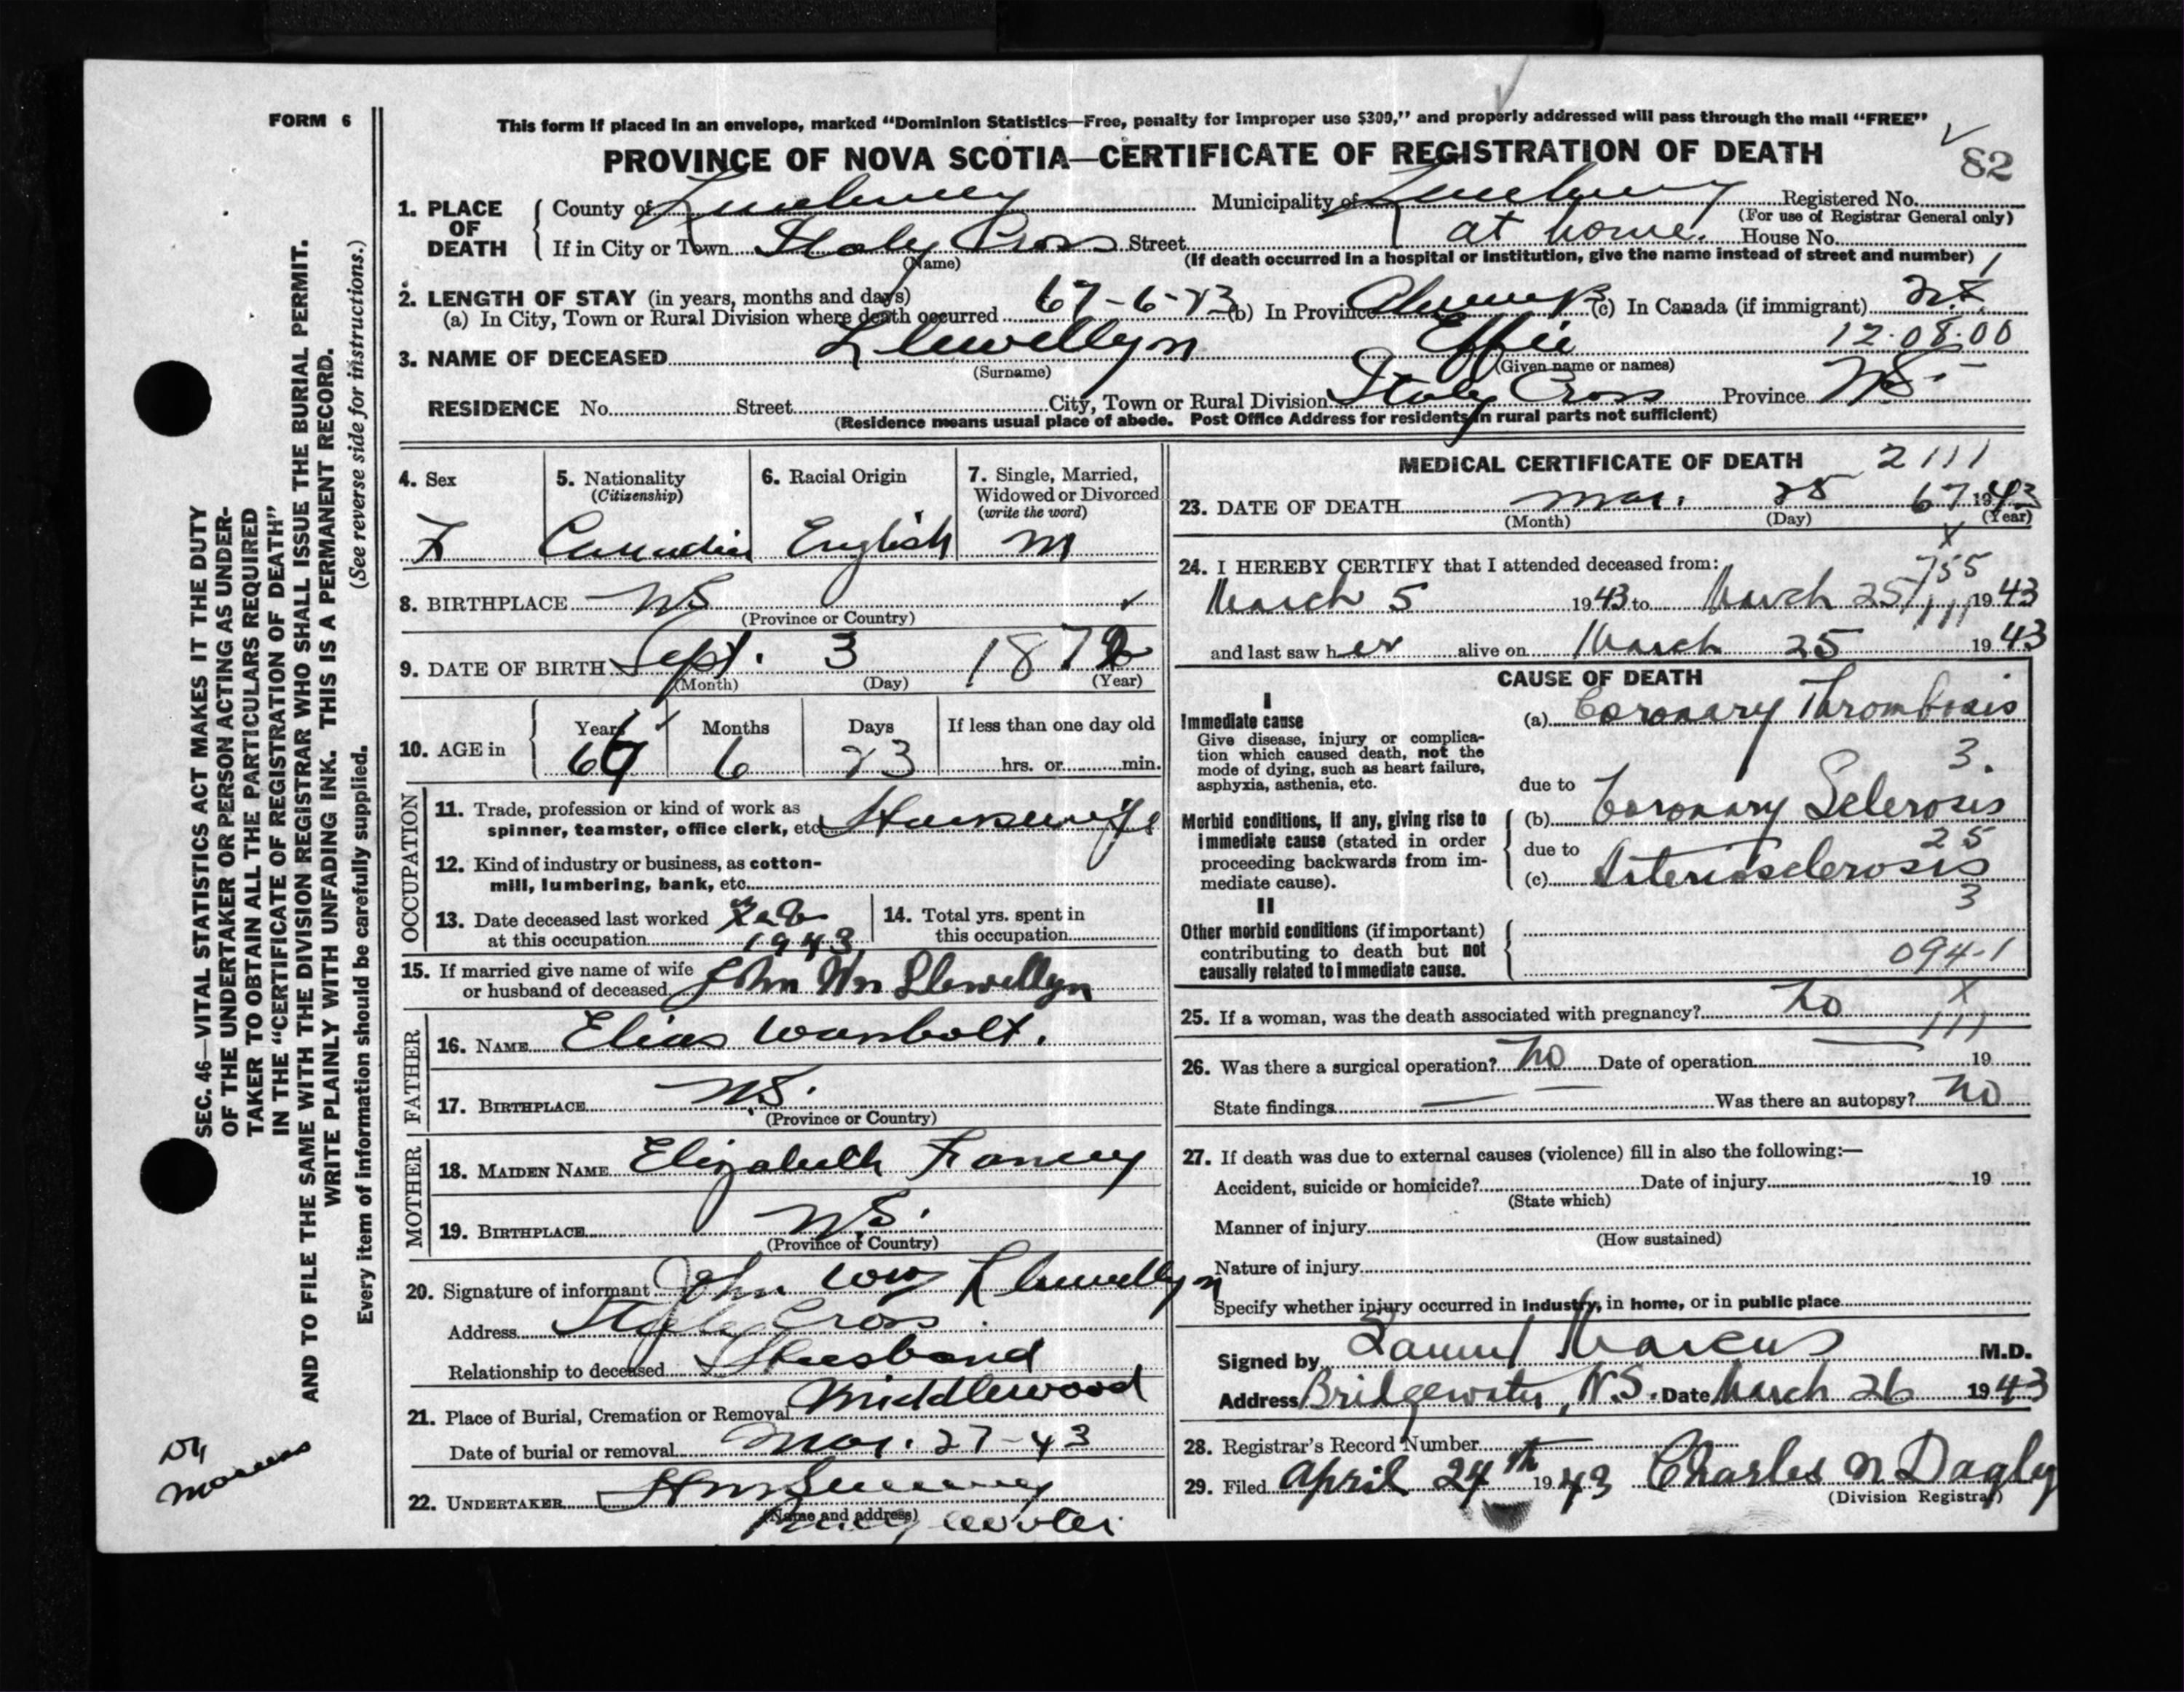 FORM 6
This form if placed in an envelope, marked “Dominion Statistics—Free, penalty for improper use $300,” and properly addressed will pass through the mail “FREE”
PROVINCE OF NOVA SCOTIA—CERTIFICATE OF REGISTRATION OF DEATH
82
1. PLACE OF DEATH
County of Lunenburg Municipality of Lunenburg Registered No.
(For use of Registrar General only)
If in City or Town Italy Cross Street at home. House No.
(Name) (If death occurred in a hospital or institution, give the name instead of street and number)
2. LENGTH OF STAY (in years, months and days)
(a) In City, Town or Rural Division where death occurred 67-6-23 (b) In Province Always (c) In Canada (if immigrant)
12.08.00
3. NAME OF DECEASED Llewellyn Effie
(Surname) (Given name or names)
RESIDENCE No. Street City, Town or Rural Division Italy Cross Province NS
(Residence means usual place of abode. Post Office Address for residents in rural parts not sufficient)
4. Sex 5. Nationality (Citizenship) 6. Racial Origin 7. Single, Married, Widowed or Divorced (write the word)
F Canadian English M
8. BIRTHPLACE NS
(Province or Country)
9. DATE OF BIRTH Sept. 3 187
(Month) (Day) (Year)
10. AGE in Years Months Days If less than one day old
6 23 hrs. or min.
OCCUPATION
11. Trade, profession or kind of work as spinner, teamster, office clerk, etc. Housewife
12. Kind of industry or business, as cotton-mill, lumbering, bank, etc.
13. Date deceased last worked at this occupation Feb 1943
14. Total yrs. spent in this occupation
15. If married give name of wife or husband of deceased John Wm Llewellyn
FATHER
16. NAME Elias Wambolt.
17. BIRTHPLACE NS.
(Province or Country)
MOTHER
18. MAIDEN NAME Elizabeth Fancy
19. BIRTHPLACE NS.
(Province or Country)
20. Signature of informant John Wm Llewellyn
Address Italy Cross
Relationship to deceased Husband
21. Place of Burial, Cremation or Removal Middlewood
Date of burial or removal Mar. 27-43
22. UNDERTAKER
(Name and address)
MEDICAL CERTIFICATE OF DEATH 2111
23. DATE OF DEATH Mar. 25 67 1943
(Month) (Day) (Year)
X
24. I HEREBY CERTIFY that I attended deceased from: 755
March 5 1943 to March 25 1943
111
and last saw her alive on March 25 1943
CAUSE OF DEATH
I
Immediate cause
Give disease, injury or complication which caused death, not the mode of dying, such as heart failure, asphyxia, asthenia, etc.
(a) Coronary Thrombosis
3.
due to
Morbid conditions, if any, giving rise to immediate cause (stated in order proceeding backwards from immediate cause).
(b) Coronary Sclerosis
25
due to
(c) Arteriosclerosis
3
II
Other morbid conditions (if important) contributing to death but not causally related to immediate cause.
094-1
X
25. If a woman, was the death associated with pregnancy? No
111
26. Was there a surgical operation? No Date of operation 19
State findings Was there an autopsy? No
27. If death was due to external causes (violence) fill in also the following:—
Accident, suicide or homicide? Date of injury 19
(State which)
Manner of injury
(How sustained)
Nature of injury
Specify whether injury occurred in industry, in home, or in public place
Signed by Samuel Marcus M.D.
Address Bridgewater, N.S. Date March 26 1943
28. Registrar's Record Number
29. Filed April 24th 1943 Charles N Dagley
(Division Registrar)
SEC. 46—VITAL STATISTICS ACT MAKES IT THE DUTY
OF THE UNDERTAKER OR PERSON ACTING AS UNDER-
TAKER TO OBTAIN ALL THE PARTICULARS REQUIRED
IN THE “CERTIFICATE OF REGISTRATION OF DEATH”
AND TO FILE THE SAME WITH THE DIVISION REGISTRAR WHO SHALL ISSUE THE BURIAL PERMIT.
WRITE PLAINLY WITH UNFADING INK. THIS IS A PERMANENT RECORD.
Every item of information should be carefully supplied. (See reverse side for instructions.)
Dr
Marcus